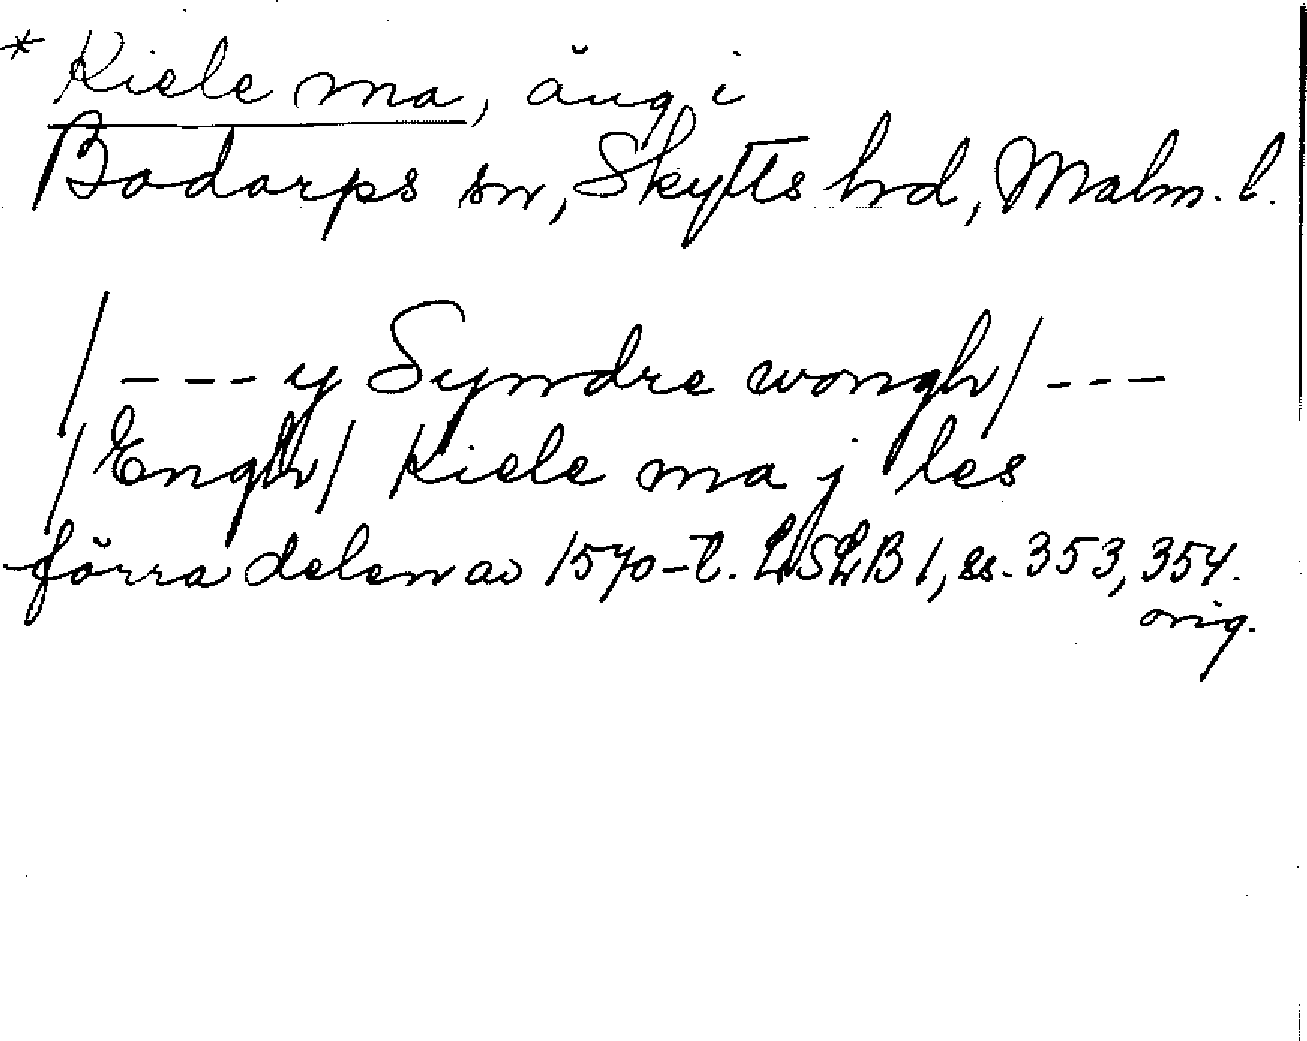 * Kiele ma, äng i
Bodarps sn, Skytts hd, Malm. l.
/ --- y Syndre wongh/ ---
/Engh/ Kiele ma j les
förra delen av 1570-t. LSLB 1, ss. 353, 354.
orig.